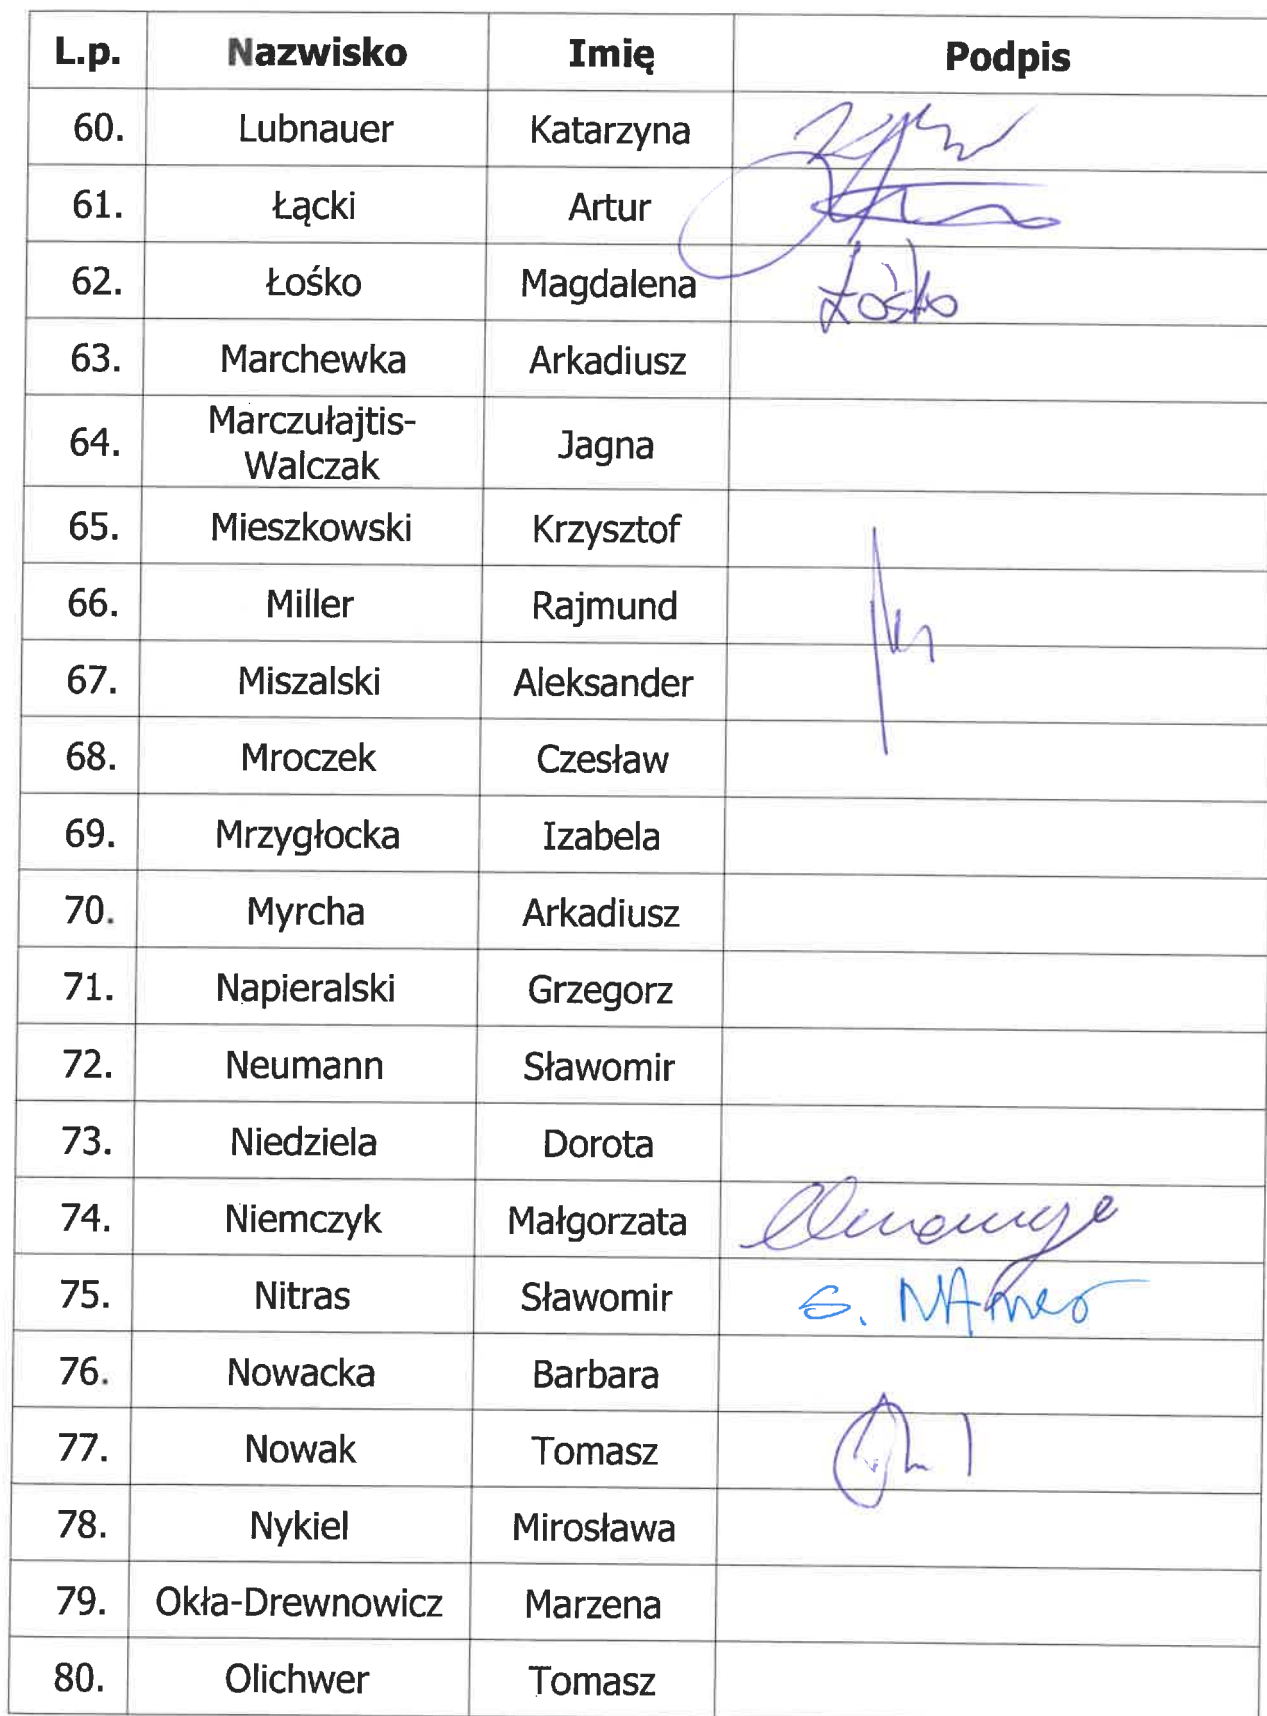 L.p. Nazwisko Imię Podpis
60. Lubnauer Katarzyna
61. Łącki Artur
62. Łośko Magdalena Łośko
63. Marchewka Arkadiusz
64. Marczułajtis-
Walczak Jagna
65. Mieszkowski Krzysztof
66. Miller Rajmund
67. Miszalski Aleksander
68. Mroczek Czesław
69. Mrzygłocka Izabela
70. Myrcha Arkadiusz
71. Napieralski Grzegorz
72. Neumann Sławomir
73. Niedziela Dorota
74. Niemczyk Małgorzata
75. Nitras Sławomir S.
76. Nowacka Barbara
77. Nowak Tomasz
78. Nykiel Mirosława
79. Okła-Drewnowicz Marzena
80. Olichwer Tomasz